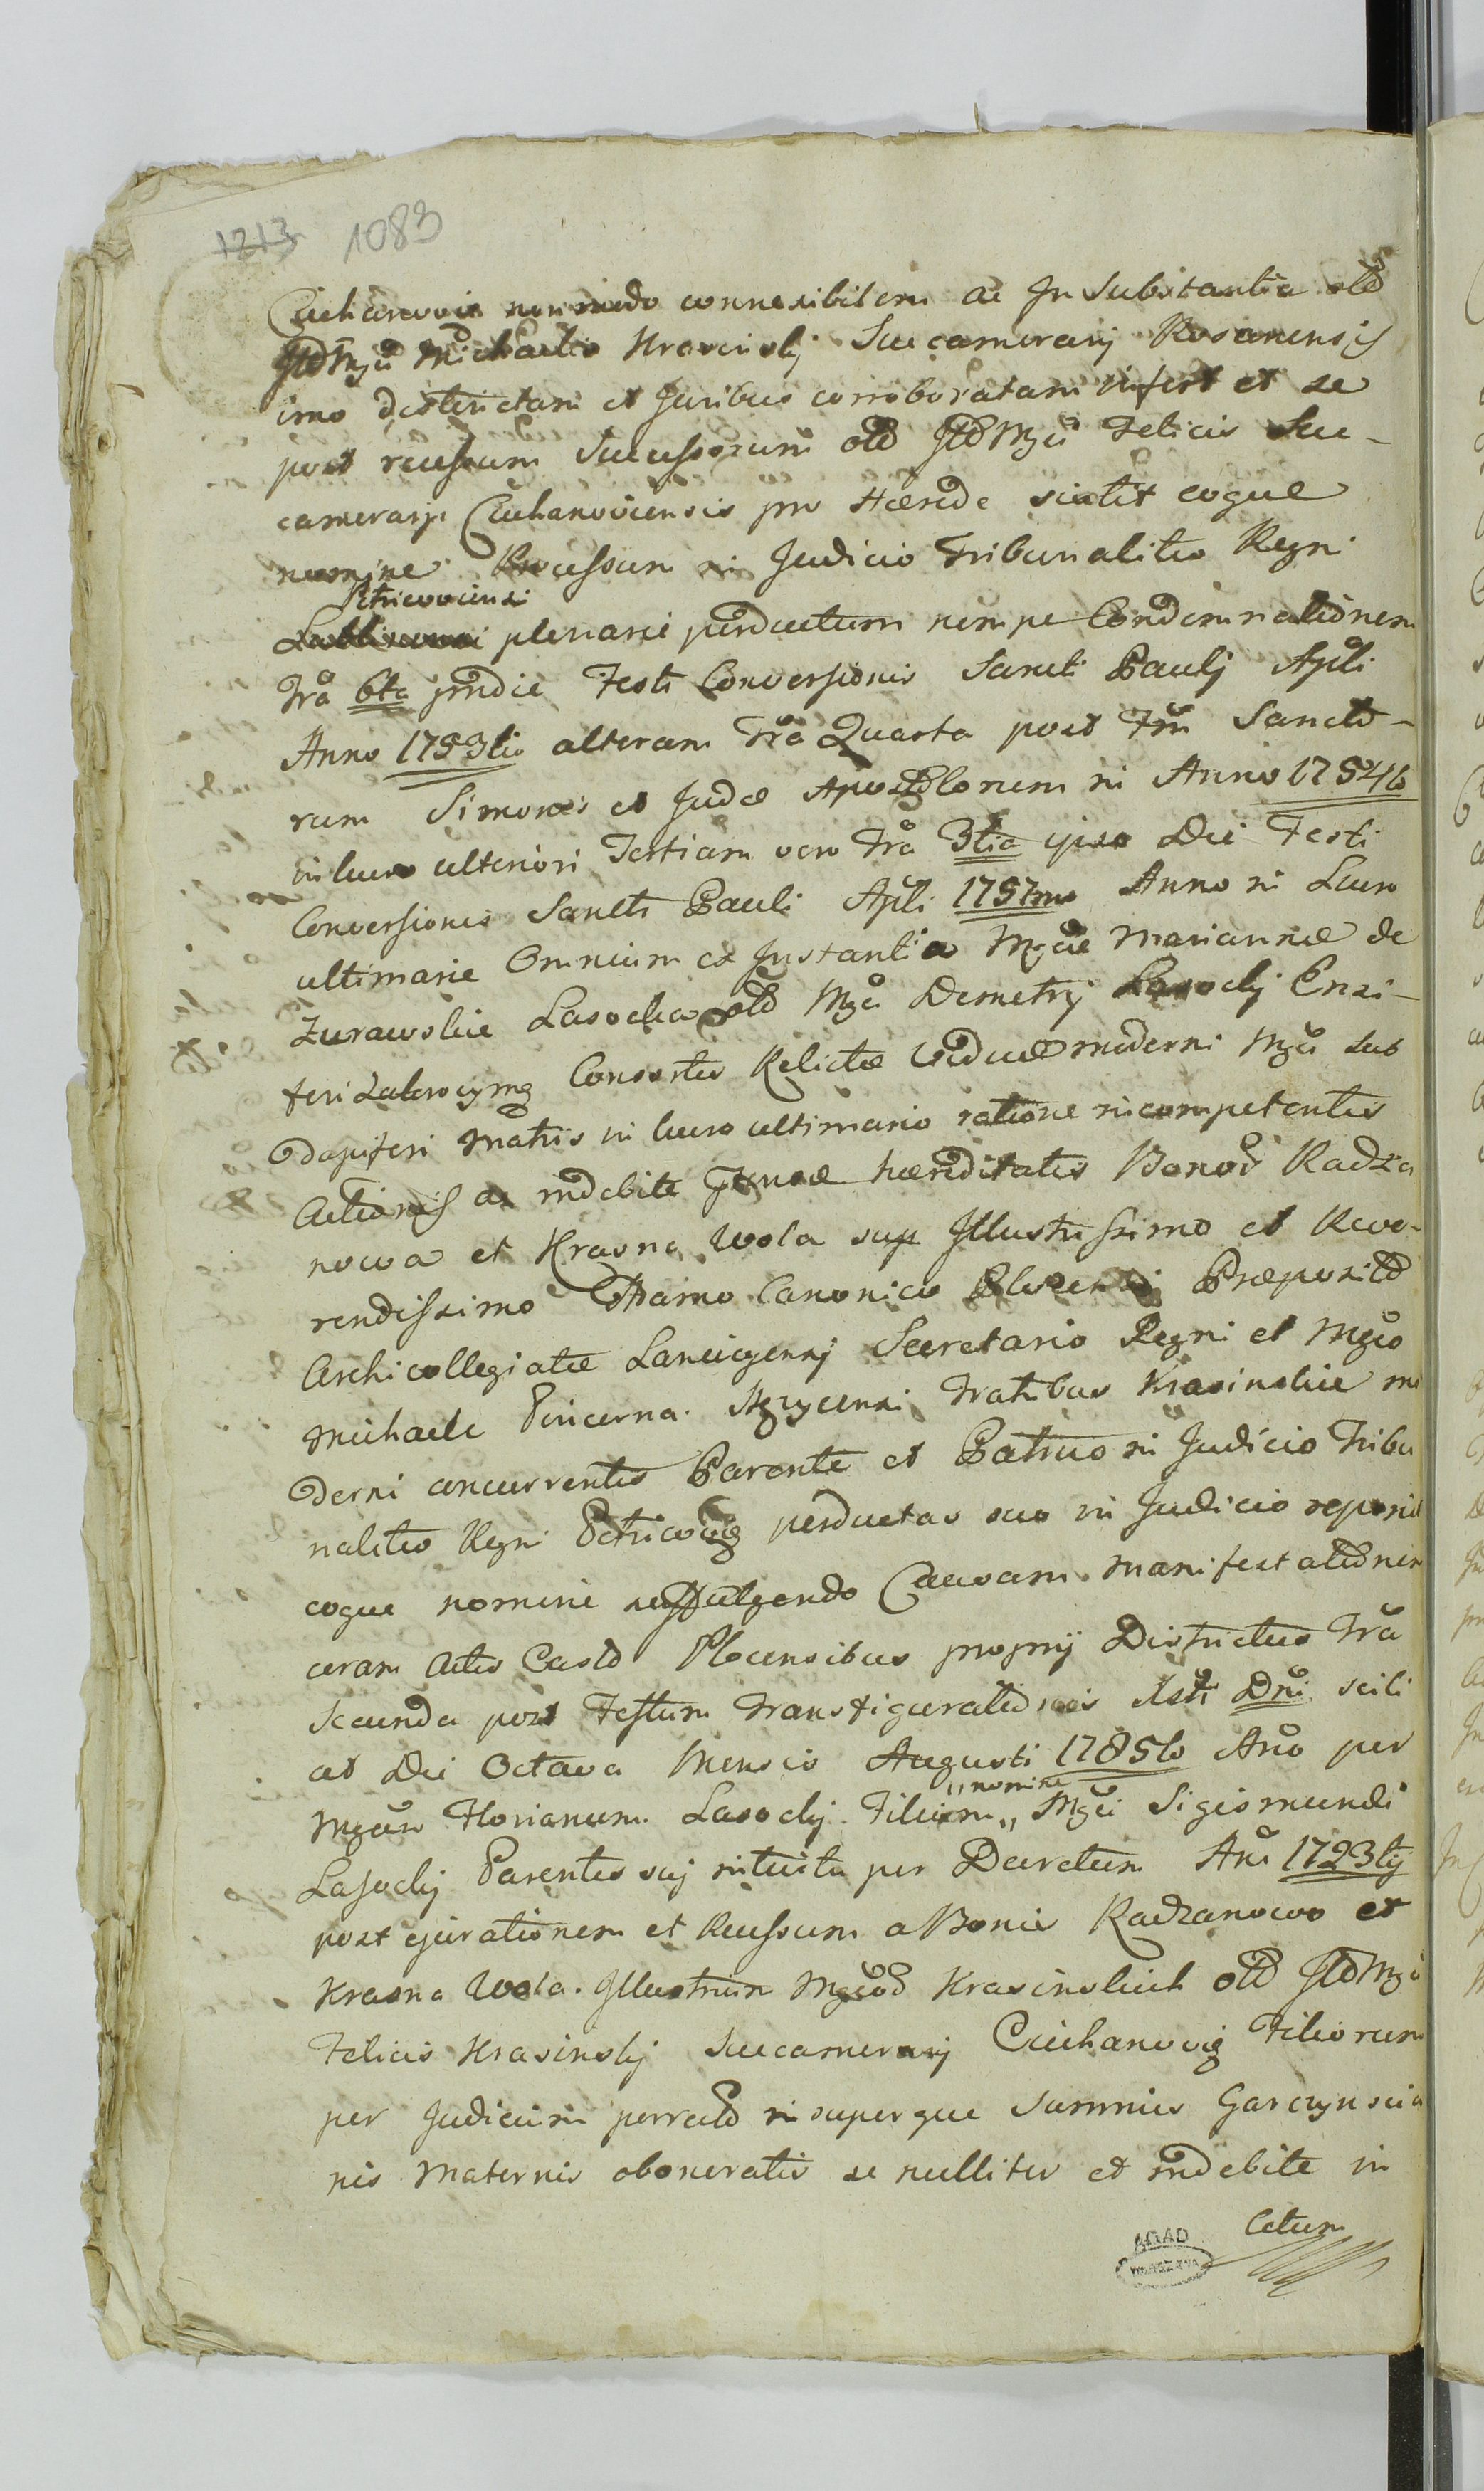 1213 1083
Ciechanovien non modo connexibilem ac In Substantia olim
Illd Mgci Michaelis Krasinskj Succamerarij Rosanensis
imo districtam et Juribus corroboratam infert et se
post recessum Successorum olim Illd Mgci Felicis Suc-
camerarji Ciechanoviensis pro Hærede scatit eoque
nomine Processum in Judicio Tribunalitio Regni
Petricoviensi
plenarie perductum nempe Condemnationem
Fra 6ta pridie Festi Conversionis Sancti Paulj Apli
Anno 1753tio alteram Fra Quarta post Ftm Sancto-
rum Simonis et Judæ Apostolorum in Anno 1754to
in lucro ulteriori Tertiam vero Fra 3tia ipso Die Festi
Conversionis Sancti Pauli Apli 1757mo Anno in Lucro
ultimarie Omnium ex Instantia Mgcæ Mariannæ de
Zurawskie Lasocka olim Mgci Demetrij Lasockj Ensi-
feri Zakrocymg Consortis Relictæ Viduæ moderni Mgci Sub
Dapiferi Matris in lucro ultimario ratione incompetentis
Actionis ac indebite Jensæ hæreditatis Bonor Radza
nowa et Krasna Wola sup Illustrissimo et Reve-
rendissimo Adamo Canonico Plocensi Præposito
Archicollegiatæ Lanciciensj Secretario Regni et Mgco
Michaele Pincerna Stezycensi Fratribus Krasinskie mo
derni concurrentis Parente et Patruo in Judicio Tribu
nalitio Regni Petricovig perductas suo in Judicio reponit
eoque nomine Caucam Manifestationem
coram Actis Castr Plocensibus proprij Districtus Fra
Secunda post Festum Transfigurationis Xsti Dni scili
cet Die Octava Mensis Augusti 1785to Ano per
nomine
Mgcum Florianum Lasockj Filium „ Mgci Sigismundi
Lasockj Parentis suj intuitu per Decretum Ani 1723tij
post ejurationem et Recessum a Bonis Radzanowo et
Krasna Wola Illustrium Mgcor Krasinskich olim Illd Mgci
Felicis Krasinskj Succamerarij Ciechanovig Filiorum
per Judicium perrecto insuperque Summis Garczynscia
nis Maternis oboneratis se nulliter et indebite in
Citum
AGAD
WARSZAWA